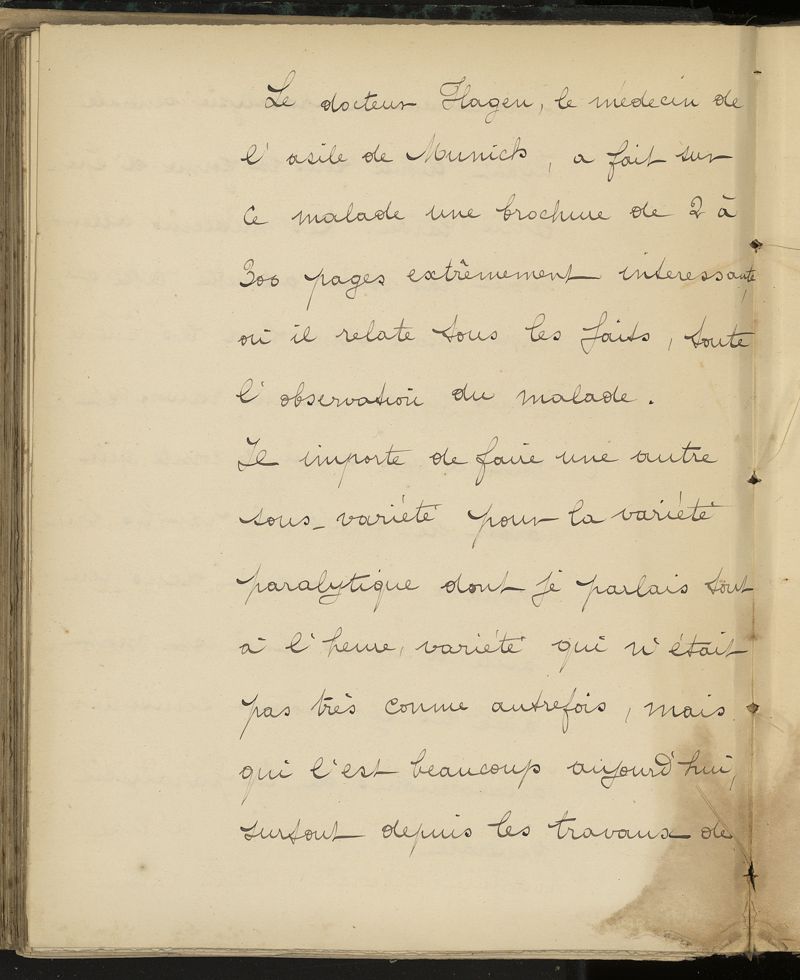 Le docteur Hagen, le médecin de
l'asile de Munich, a fait sur
ce malade une brochure de 2 à
300 pages extrêmement interessante,
où il relate tous les faits, toute
l'observation du malade.
Il importe de faire une autre
sous-variété pour la variété
paralytique dont je parlais tout
à l'heure, variété qui n'était
pas très connue autrefois, mais
qui l'est beaucoup aujourd'hui,
surtout depuis les travaux de